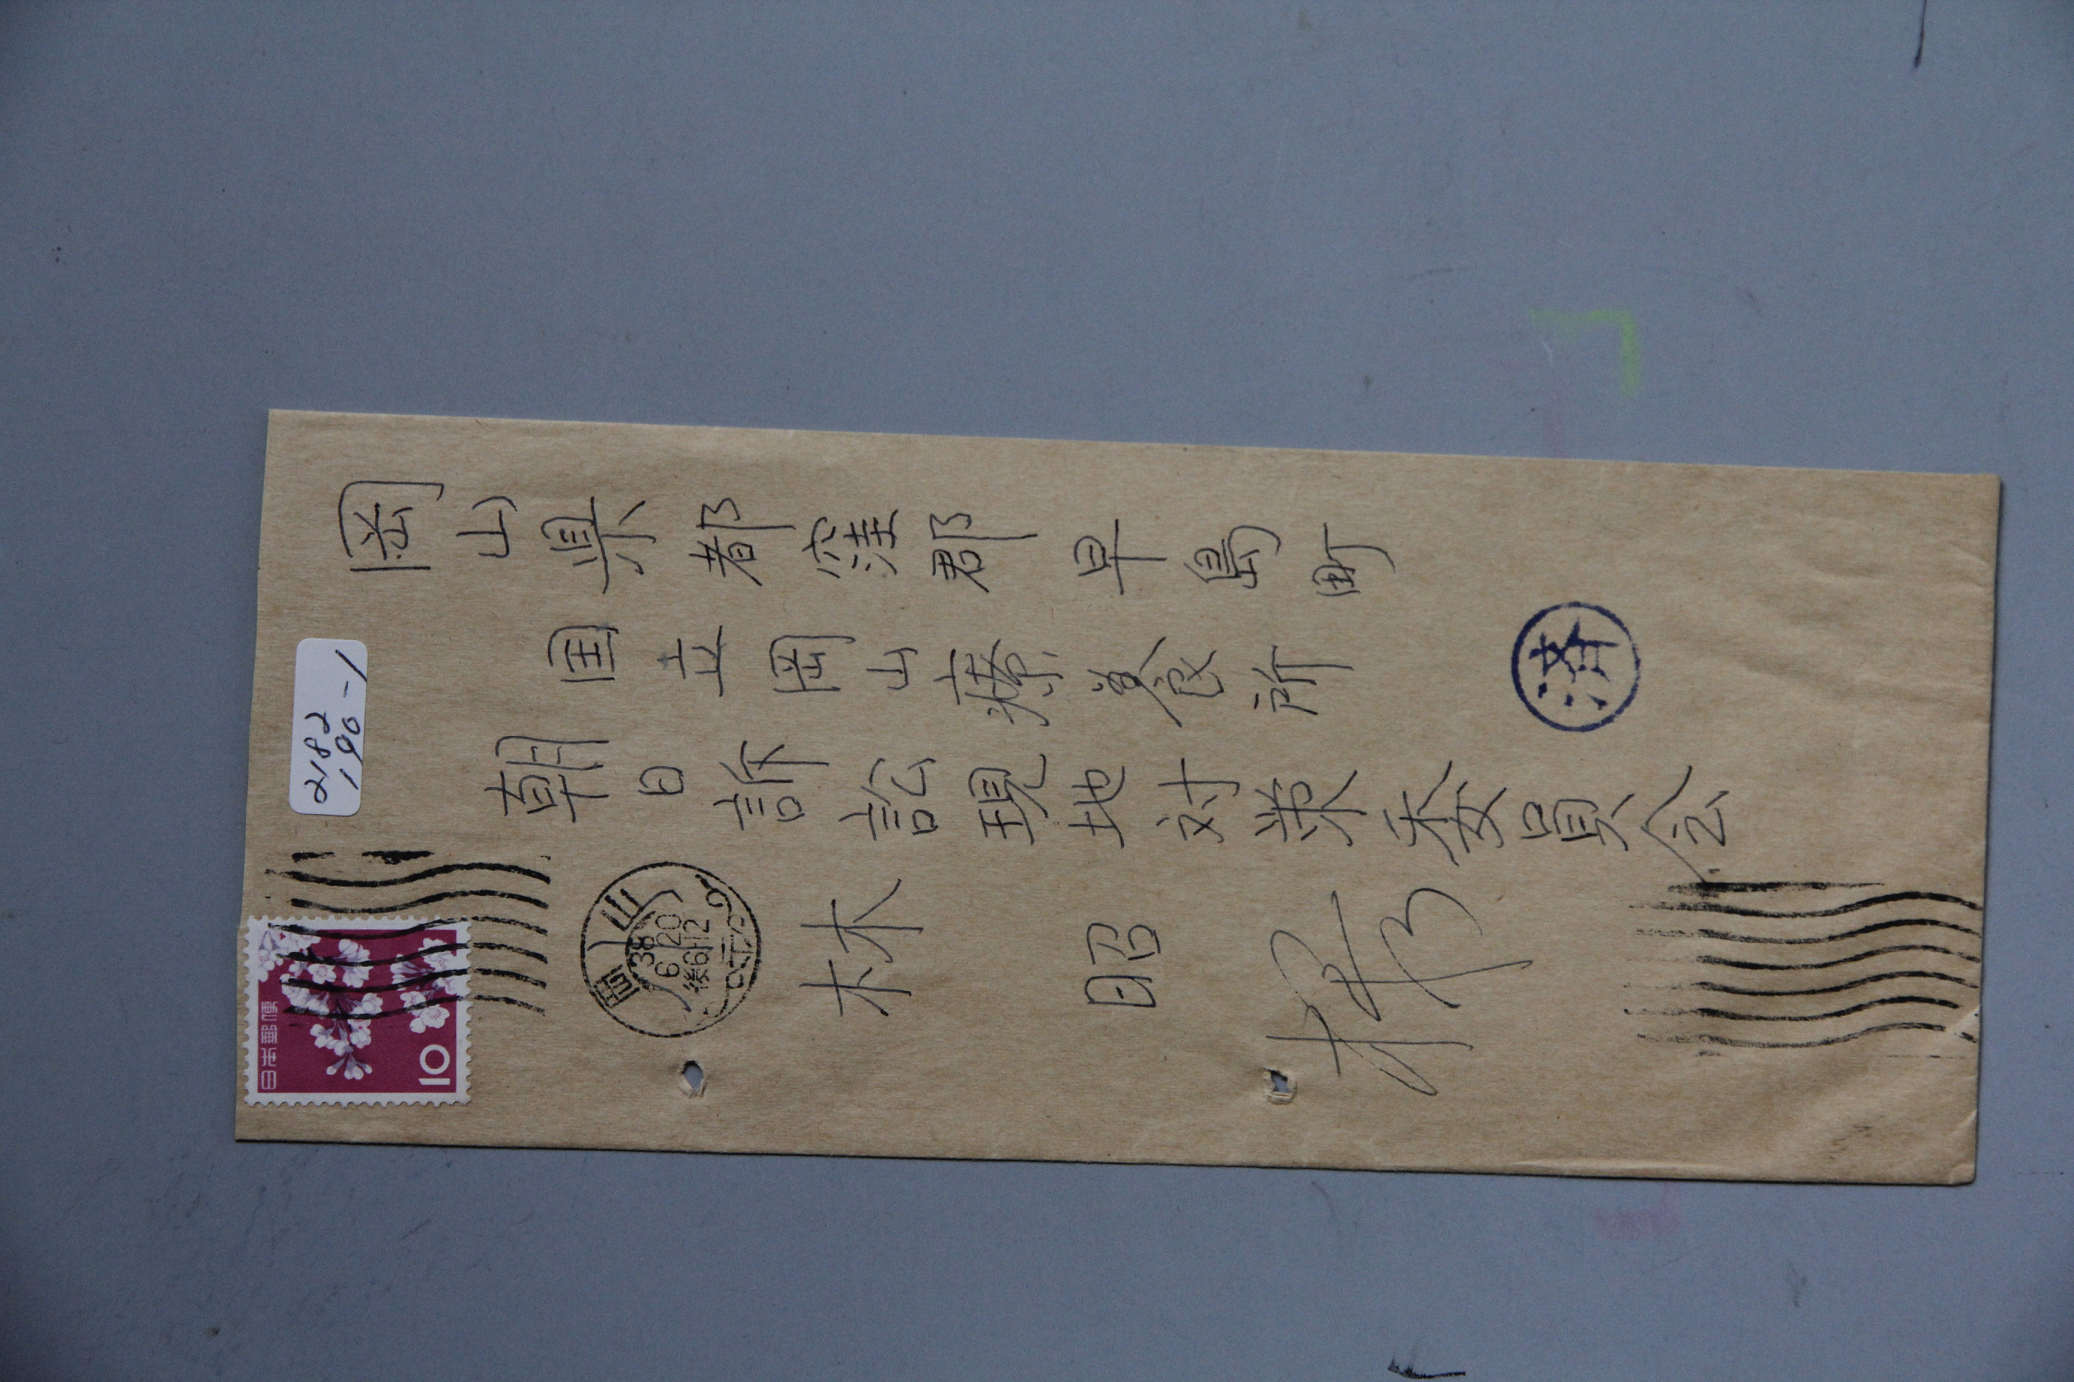 岡山県都窪郡早島町
国立岡山療養所
朝日訴訟現地対策委員会
林 昭 様
済
2182
190-1
日本郵便
10
岡山
38
6 20
後6-12